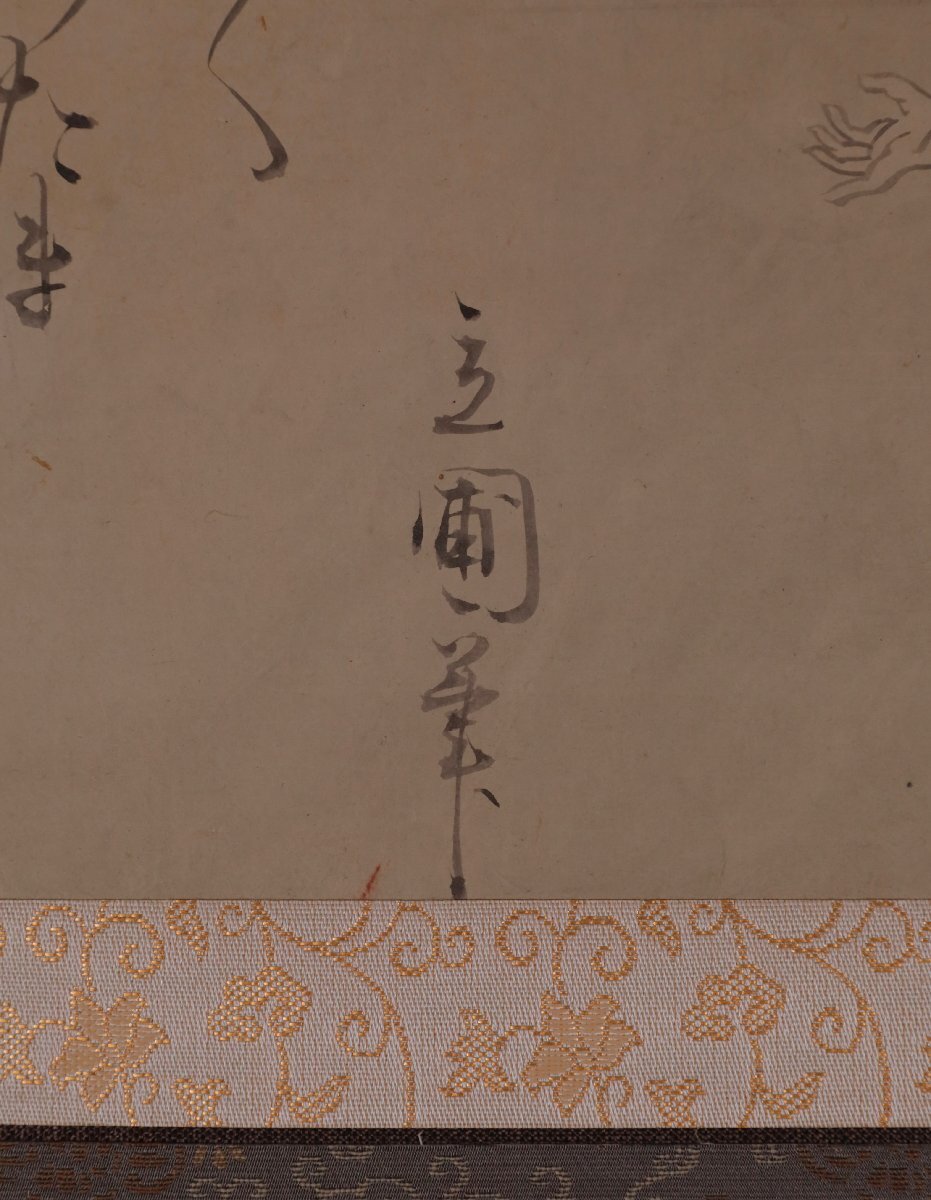 立圃筆
たま